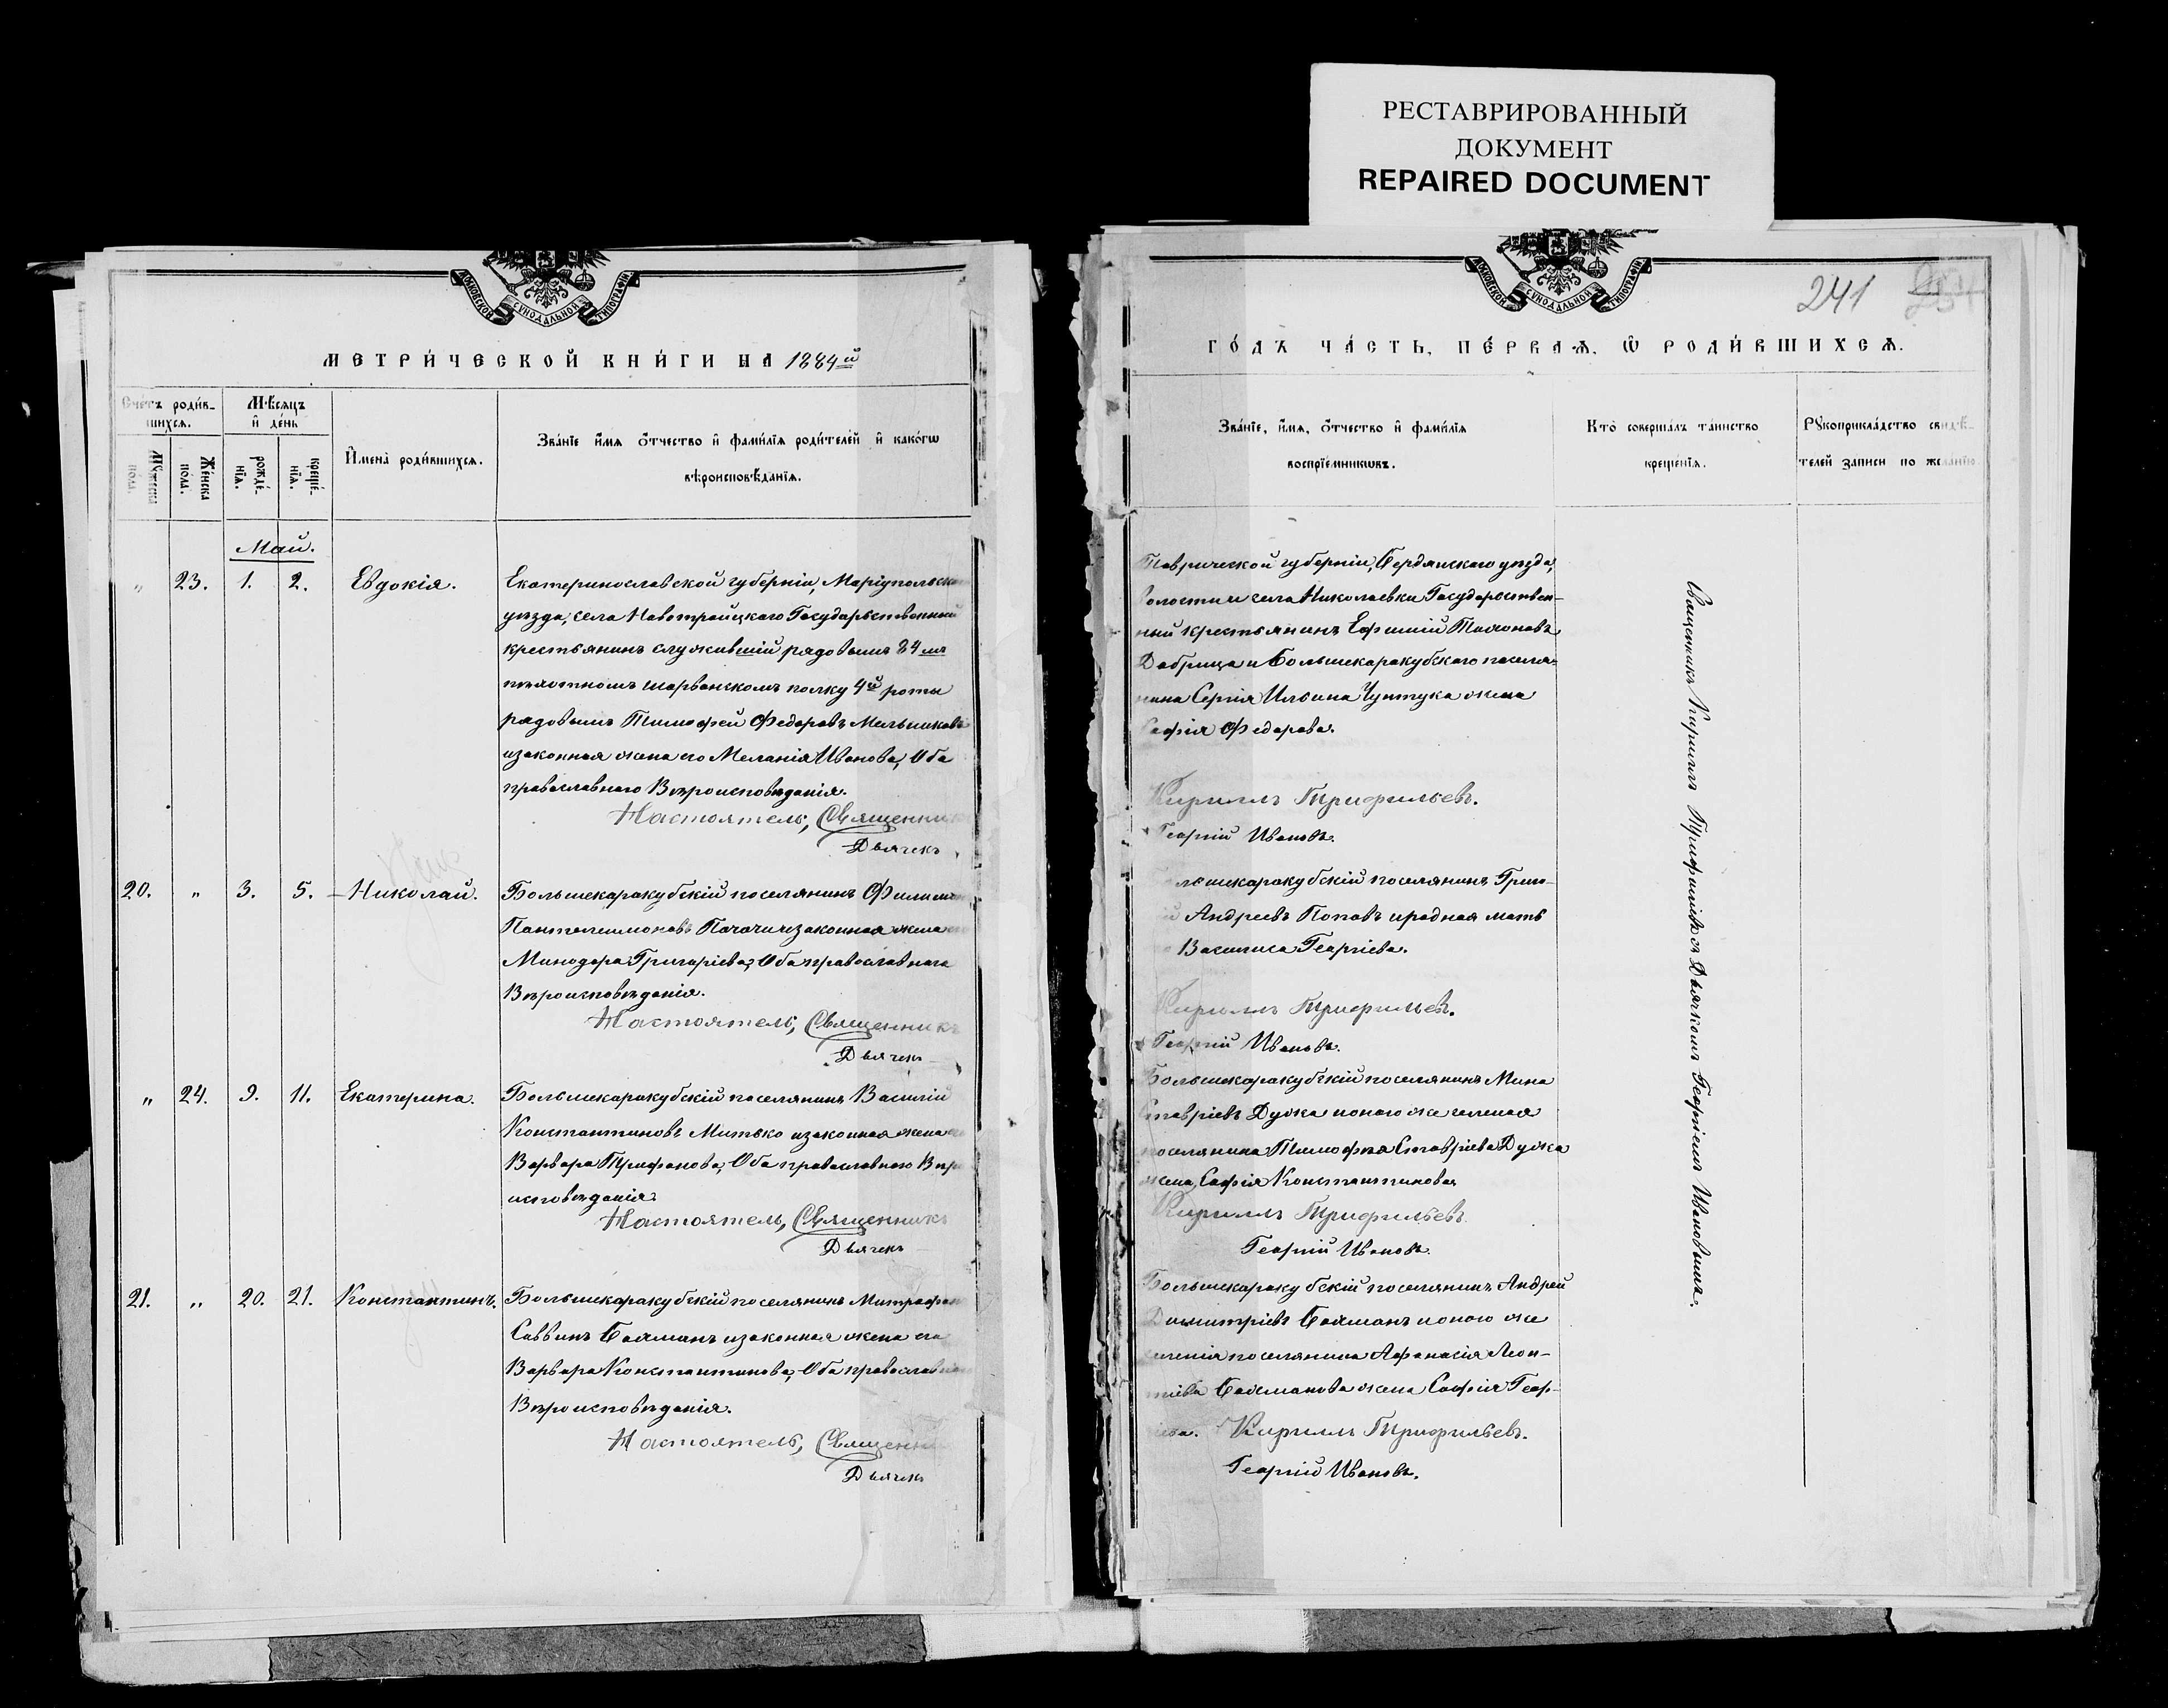 РЕСТАВРИРОВАННЫЙ
ДОКУМЕНТ
REPAIRED DOCUMENT
МОСКОВСКОЙ СѴНОДАЛЬНОЙ ТИПОГРАФІИ
МЕТРИ́ЧЕСКОЙ КНИ́ГИ НА 1884й
Счетъ роди́в-
шихся.
Мѣсяцъ
и҆ де́нь
Мꙋжеска
пола.
Же́нска
пола.
рожде́-
нїѧ.
креще́-
нїѧ.
И҆мена̀ роди́вшихсѧ.
Зва́нїе и҆́мѧ ѻ҆́тчество и҆ фами́лїѧ роди́телей и҆ како́гѡ
вѣроисповѣ́данїѧ.
Май.
" 23. 1. 2. Евдокія.
Екатеринославской губерніи, Маріупольска
уѣзда, села Новотроицкаго Государственный
крестьянинъ служившій рядовымъ 84мъ
пѣхотномъ Ширванскомъ полку 4й роты
рядовымъ Тимофей Федоровъ Мельниковъ
и законная жена его Меланія Иванова, Оба
православнаго Вѣроисповѣданія.
Настоятель, Священник
Дьячекъ
20. " 3. 5. Николай.
Большекаракубскій поселянинъ Филимон
Пантелеимоновъ Пачачи и законная жена
Минодора Григоріева, Оба православнаго
Вѣроисповѣданія.
Настоятель, Священникъ
Дьячекъ
" 24. 9. 11. Екатерина.
Большекаракубскій поселянинъ Василій
Константиновъ Митько и законная жена
Варвара Трифонова, Оба православнаго Вѣр
исповѣданія.
Настоятель, Священникъ
Дьячекъ
21. " 20. 21. Константинъ.
Большекаракубскій поселянинъ Митрофан
Саввинъ Балманъ и законная жена его
Варвара Константинова, Оба православна
Вѣроисповѣданія.
Настоятель, Священни
Дьячекъ
МОСКОВСКОЙ СѴНОДАЛЬНОЙ ТИПОГРАФІИ
241
ГО́ДЪ ЧА́СТЬ, ПЕ́РВАѦ, Ѡ҆ РОДИ́ВШИХСѦ.
Зва́нїе, и҆́мѧ, ѻ҆́тчество и҆ фами́лїѧ
воспрїе́мникѡвъ.
Кто̀ соверша́лъ та́инство
креще́нїѧ.
Рꙋкоприкла́дство свидѣ́-
телей записи по жела́нїю.
Таврической губерніи, Бердянскаго уѣзда,
волости и села Николаевки Государствен-
ный крестьянинъ Ефимій
Добрица и Большекаракубскаго поселя-
нина Сергія Ильина Чунтука жена
Софія Федорова.
Кириллъ Трифильевъ.
Георгій Ивановъ.
льшекаракубскій поселянинъ Григо-
ій Андреевъ Поповъ и родная мать
Василиса Георгіева.
Кириллъ Трифильевъ.
Георгій Ивановъ.
Большекаракубскій поселянинъ Мина
Ставріевъ Дужа и оного же селенія
поселянина Тимофѣя Ставріева Дужа
жена, Софія Константинова
Кириллъ Трифильевъ
Георгій Ивановъ.
Большекаракубскій поселянинъ Андрей
Димитріевъ Балманъ и оного же
селенія поселянина Афанасія Леон-
тіева Балманова жена Софія Геор-
іева. Кириллъ Трифильевъ.
Георгій Ивановъ.
Священникъ Кириллъ Трифильевъ съ Дьячкомъ Георгіемъ Ивановымъ.